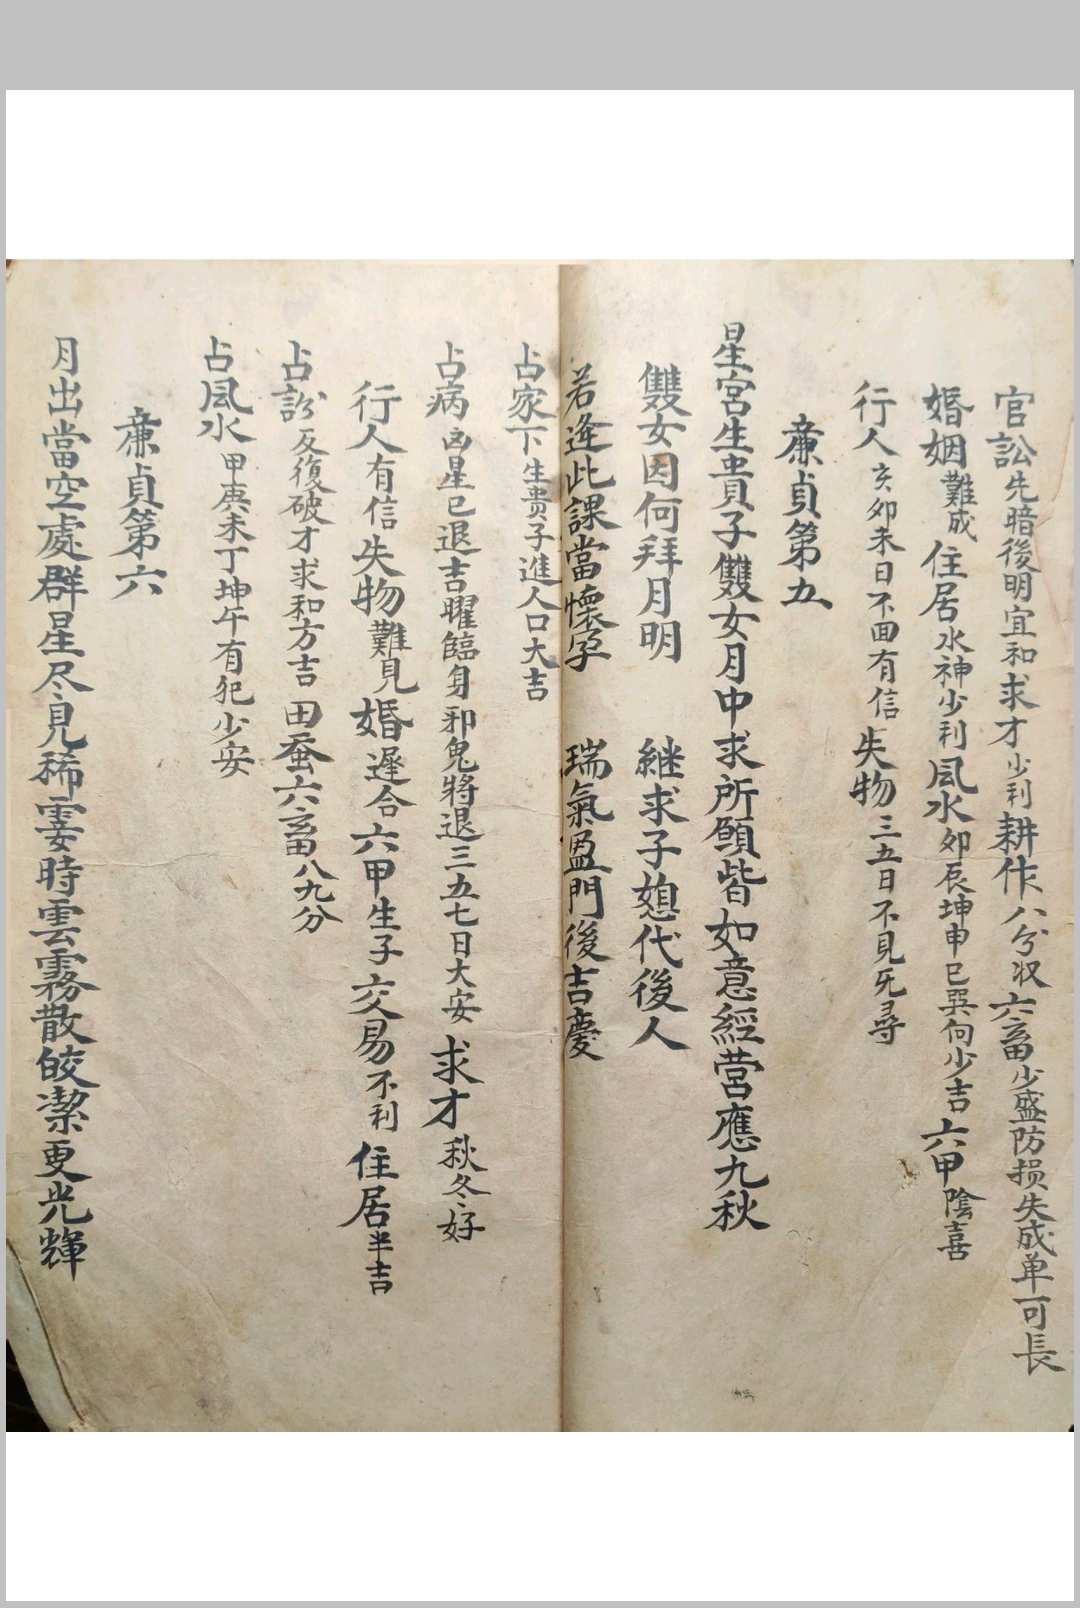 官訟先暗後明宜和求才少利耕作八分収六畜少盛防损失成单可長
婚姻難成住居水神少利風水卯辰坤申巳巽向少吉六甲陰喜
行人亥卯未日不囬有信失物三五日不見死尋
亷貞第五
星宮生貴子雙女月中求所願皆如意經営應九秋
雙女因何拜月明 継求子媳代後人
若逢此課當懷孕 瑞氣盈門後吉慶
占家下生贵子進人口大吉
占病凶星已退吉曜臨身邪鬼將退三五七日大安求才秋冬好
行人有信失物難見婚遲合六甲生子交易不利住居半吉
占訟反復破才求和方吉田蚕六畜八九分
占風水甲庚未丁坤午有犯少安
亷貞第六
月出當空處群星尽見稀霎時雲霧散皎潔更光輝